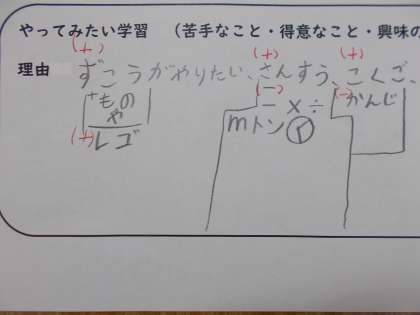 やってみたい学習 (苦手なこと・得意なこと・興味の
(+) (+) (+)
理由 ずこうがやりたい、さんすう、こくご、
(-) (-)
+もの
や
(+)レゴ
- × ÷
mトン
かんじ